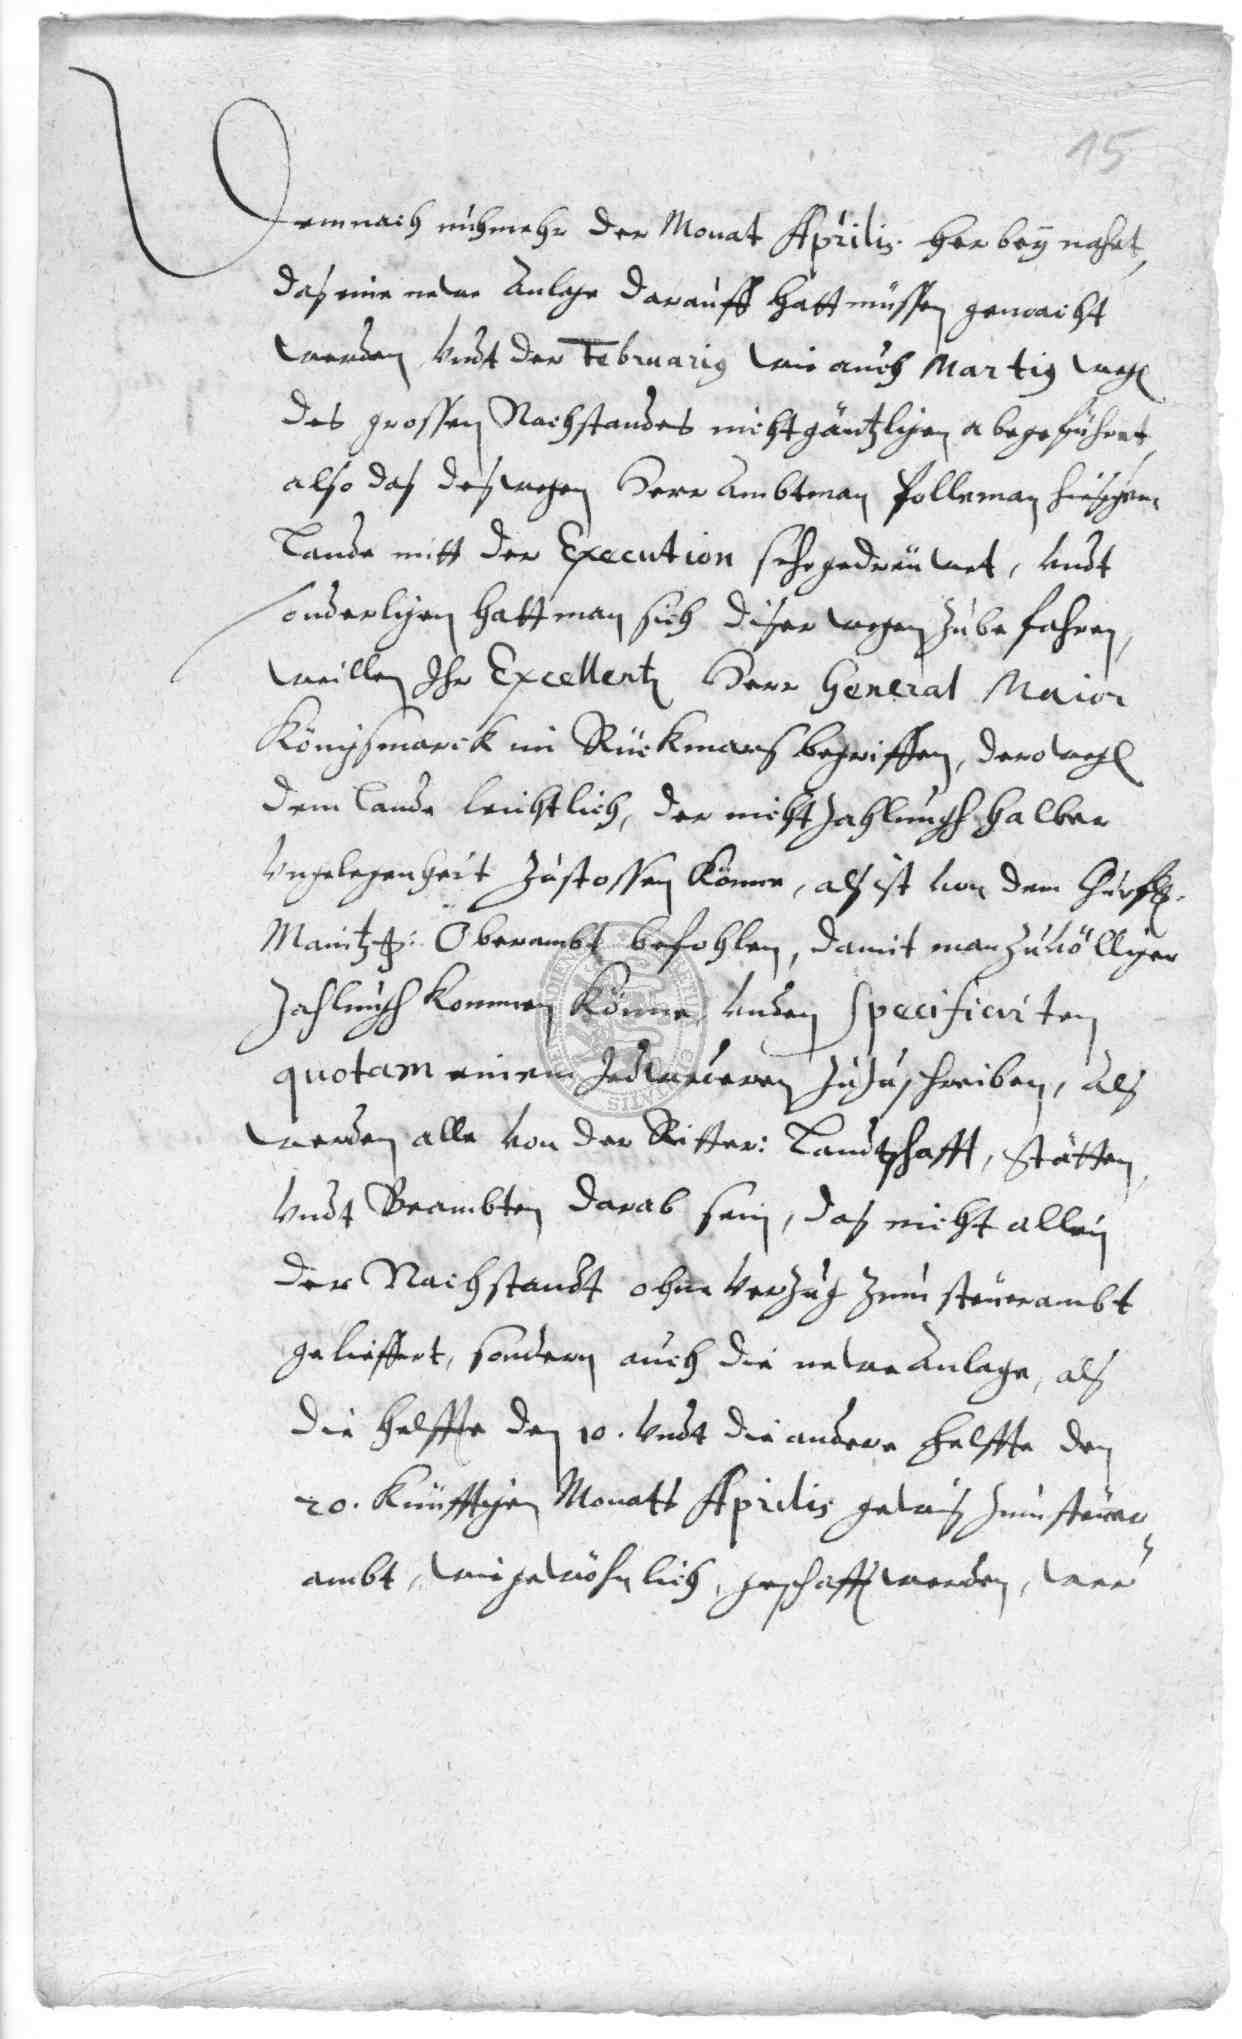 15
Demnach nuhmehr der Monat Aprilis herbey nahet,
das eine newe Anlage darauff hatt müssen gemacht
werden, undt der Februarius wie auch Martius weg
des grossen Nachstandes nicht gäntzligen abgeführet,
also das deswegen Herr Ambtman Polleman hiesigem
Lande mitt der Execution sehr gedreuwet, undt
sonderligen hatt man sich diser wegen zubefahren,
weillen Ihr Excellentz Herr General Maior
Königsmarck im Rückmars begriffen, deroweg
dem Lande leichtlich, der nicht Zahlungh halber
Ungelegenheit zustossen könne, als ist von dem Churf.
Maintz: Oberambt befohlen, damit man zu völliger
Zahlungh kommen könne, unden specificirten
quotam einem Jedwederen zuzuschreiben, als
werden alle von der Ritter: Landtschafft, Stätten,
undt Beambten darab sein, das nicht allein
der Nachstandt ohne Verzug zum steuerambt
gelieffert, sondern auch die newe Anlage, als
die helffte den 10. undt die andere helffte den
20. künfftigen Monats Aprilis gewis zum steuer
ambt, wie gewöhnlich, geschafft werden, wer